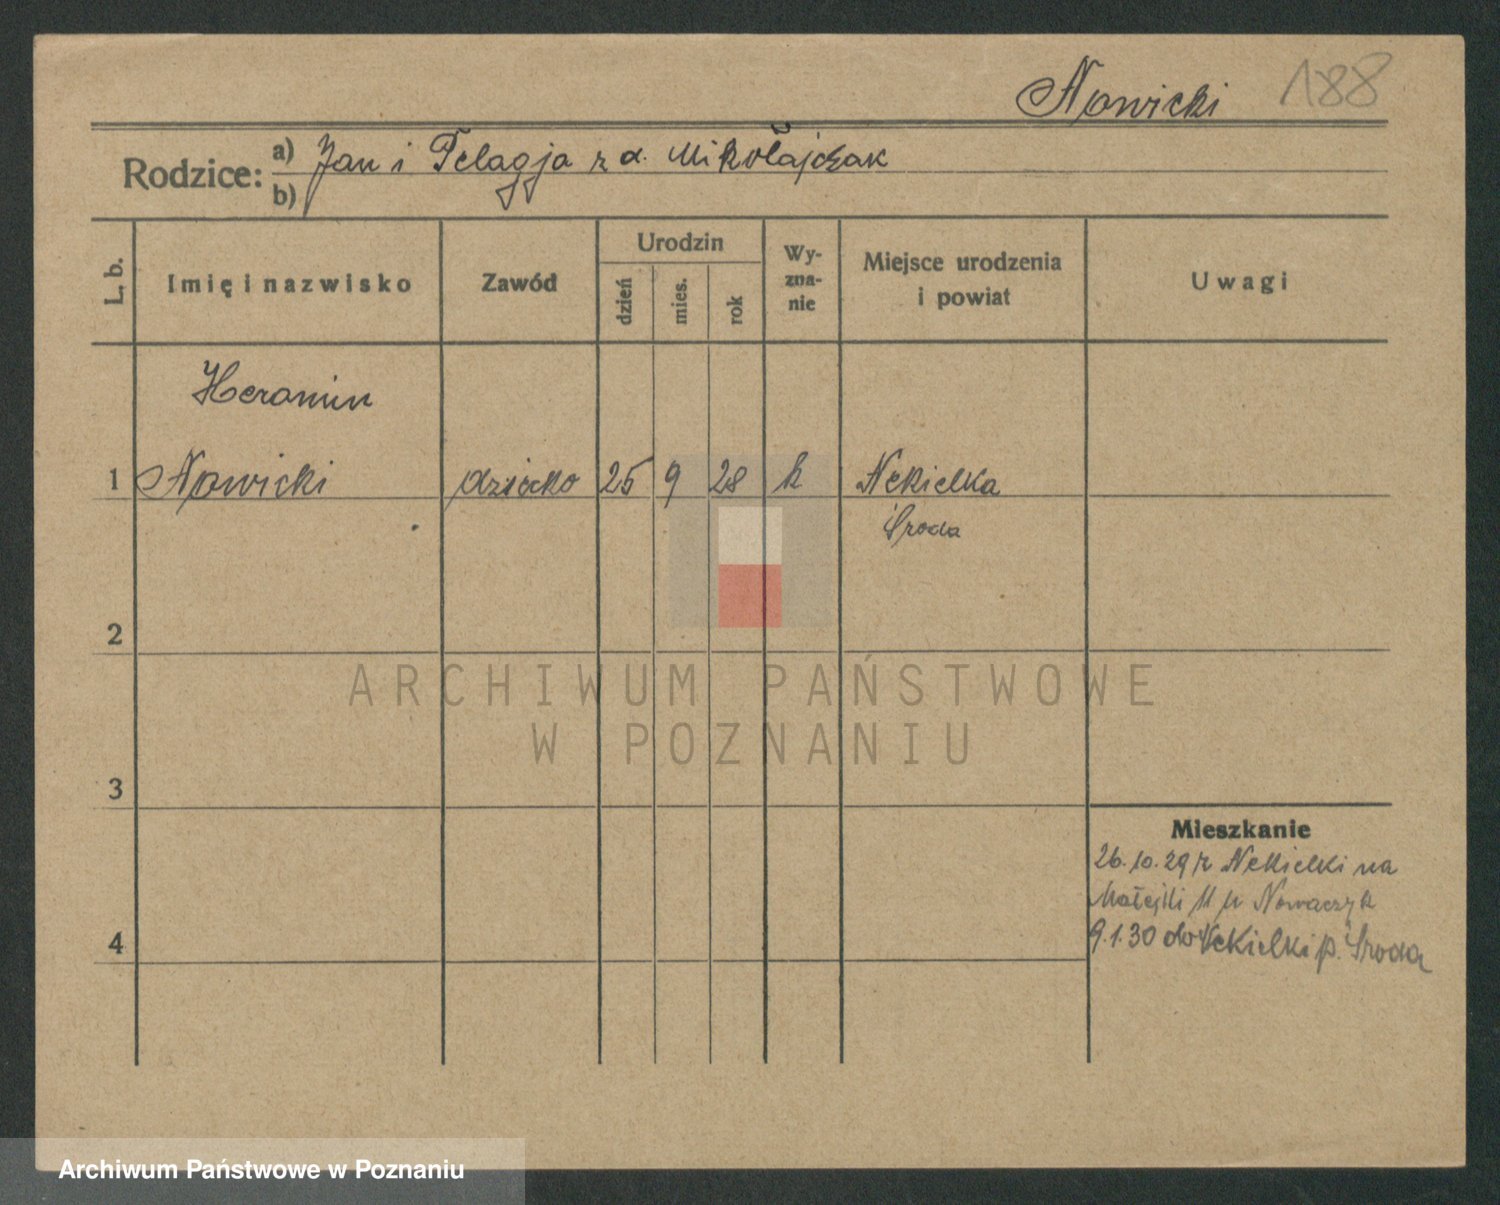 Nowicki 188
Rodzice: a) Jan i Pelagja z d. Mikołajczak
b)
L. b. Imię i nazwisko Zawód Urodzin dzień mies. rok Wyzna-nie Miejsce urodzenia i powiat Uwagi
Heromin
1 Nowicki dziecko 25 9 28 k Nekielka
Środa
2
ARCHIWUM PAŃSTWOWE
W POZNANIU
3
Mieszkanie
26.10.29 z Nekielki na
11 u Nowaczyk
4 9.1.30 do Nekielki p. Środa
Archiwum Państwowe w Poznaniu